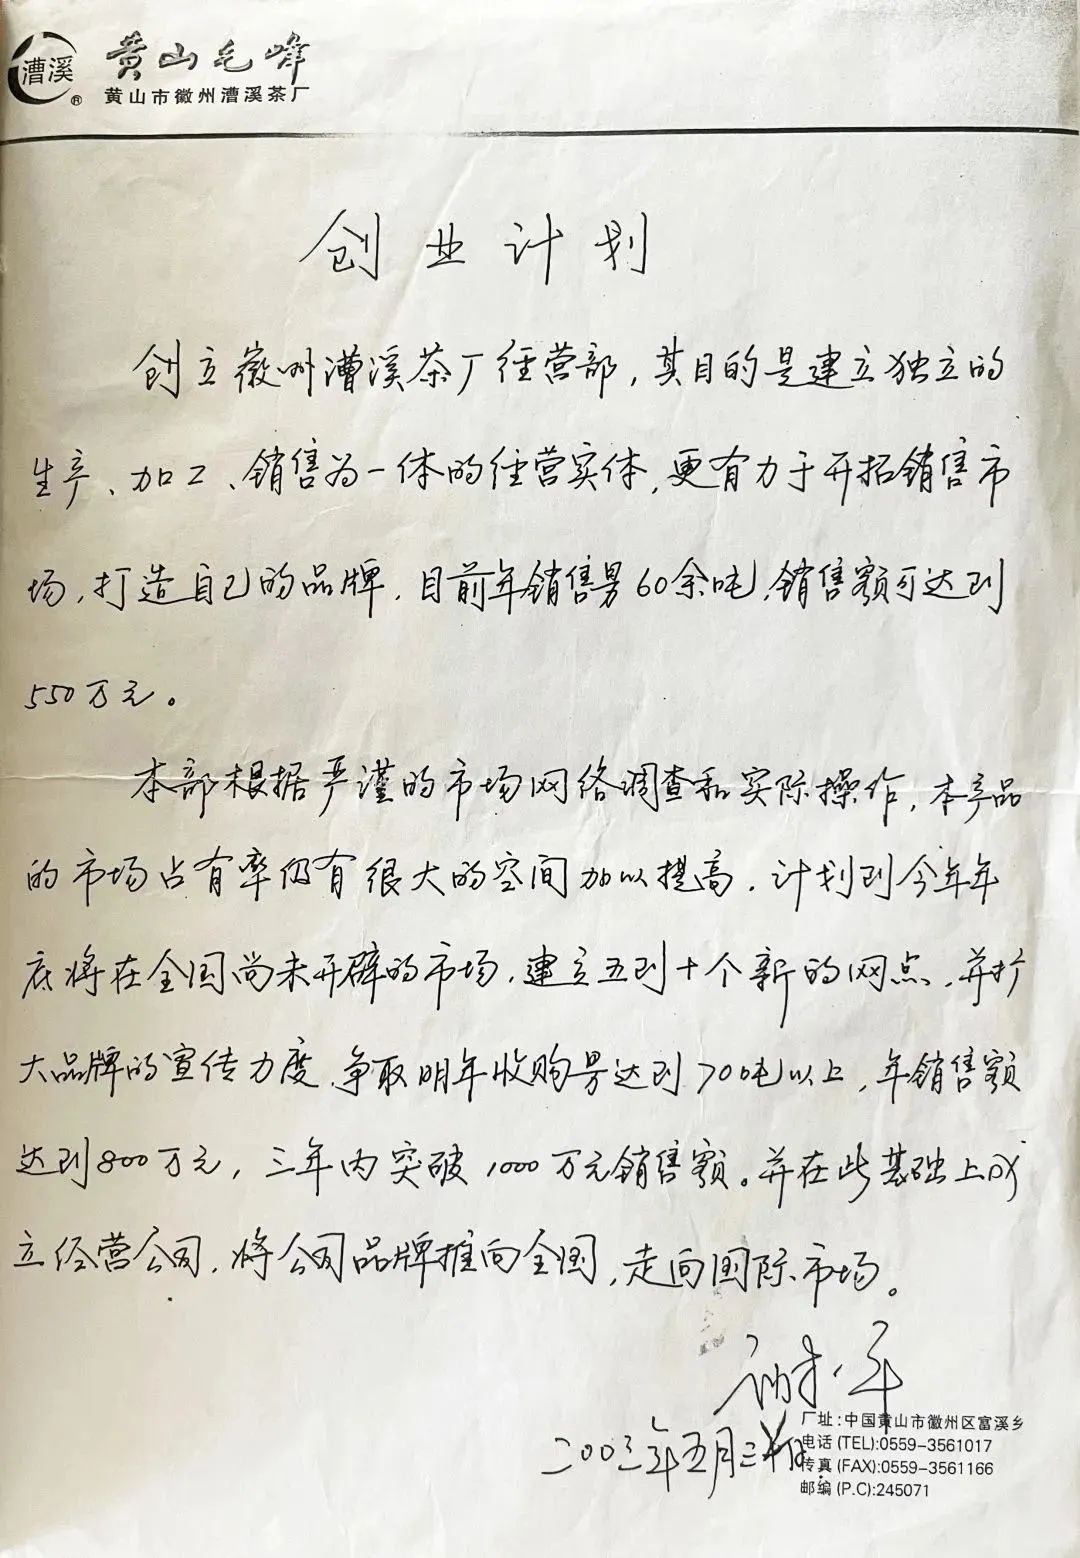 漕溪®
黄山毛峰
黄山市徽州漕溪茶厂
创业计划
创立徽州漕溪茶厂经营部，其目的是建立独立的
生产、加工、销售为一体的经营实体，更有力于开拓销售市
场，打造自己的品牌，目前年销售量60余吨，销售额可达到
550万元。
本部根据严谨的市场网络调查和实际操作，本产品
的市场占有率仍有很大的空间加以提高，计划到今年年
底将在全国尚未开辟的市场，建立五到十个新的网点，并扩
大品牌的宣传力度，争取明年收购量达到700吨以上，年销售额
达到800万元，三年内突破1000万元销售额。并在此基础上成
立经营公司，将公司品牌推向全国，走向国际市场。
谢一平
二00三年五月三日
厂址:中国黄山市徽州区富溪乡
电话(TEL):0559-3561017
传真(FAX):0559-3561166
邮编(P.C):245071